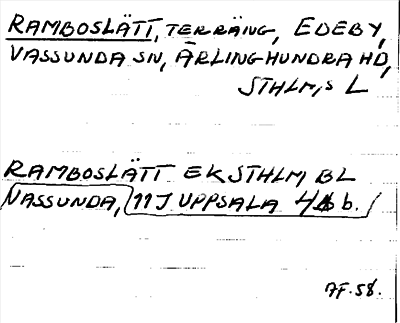 RAMBOSLÄTT, TERRÄNG, EDEBY,
VASSUNDA SN, ÄRLINGHUNDRA HD,
STHLM,S L
RAMBOSLÄTT EK STHLM, BL
VASSUNDA, 11 J UPPSALA 4 b.
AF.58.